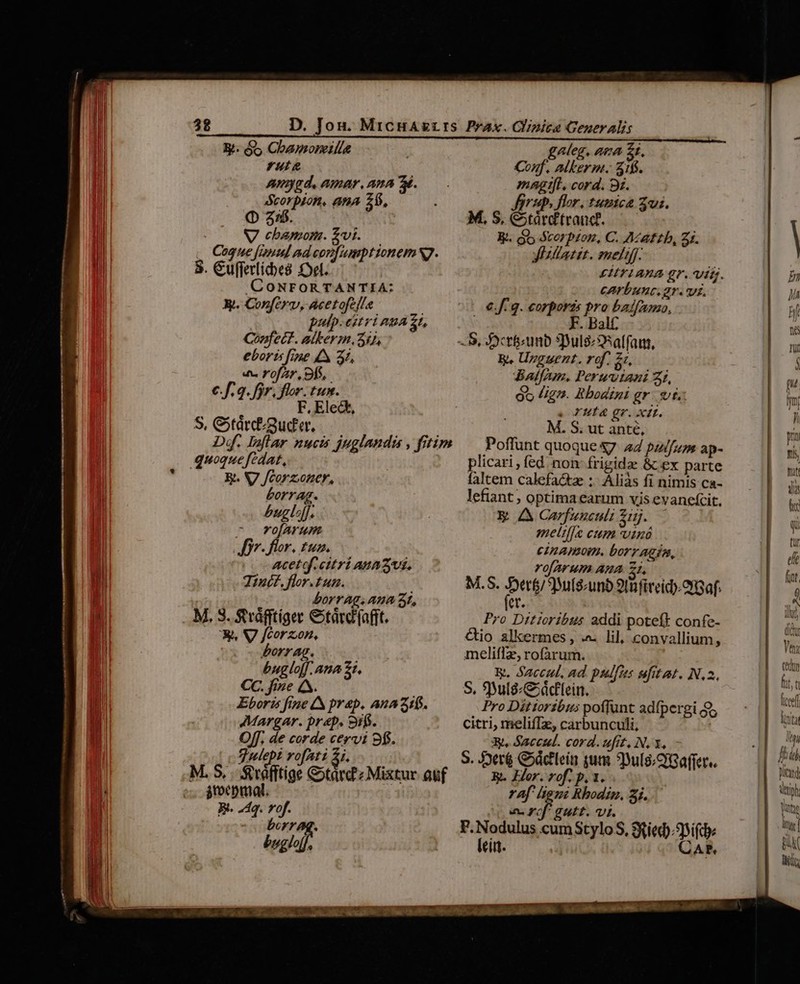 38 D. Joh. Michaelis Prax. Clinica Generalis
℞. ꝏ Chamomillæ
rutæ
amygd. amar. ana ℥i.
Scorpion. ana ℥ß.
🜔 ʒiß.
🜄 chamom. ℥vi.
Coque simul ad consumptionem 🜄.
S. Eusserliches Oel.
CONFORTANTIA:
℞. Conserv. acetosellæ
pulp. citri ana ℥i,
Confect. alkerm. ʒii,
eboris sine 🜂 ʒi,
rosar. ℈ß,
e. s. q. syr. flor. tun.
F. Elect.
S. Stärck-Zucker.
Dos. Instar nucis juglandis, sitim
quoque sedat.
℞. 🜄 scorzoner.
borrag.
bugloss.
rosarum
syr. flor. tun.
acetos. citri ana ℥vi.
Tinct. flor. tun.
borrag. ana ʒi,
M. S. Kräfftiger Stärcksafft.
℞. 🜄 scorzon.
borrag.
bugloss. ana ℥i.
CC. sine 🜂.
Eboris sine 🜂 præp. ana ʒiß.
Margar. præp. ℈iß.
Oss. de corde cervi ℈ß.
Julepi rosati ℥i.
M. S. Kräfftige Stärck-Mixtur auf
zweymal.
℞. Aq. ros.
borrag.
bugloss.
galeg. ana ℥i.
Conf. alkerm. ʒiß.
magist. cord. ℈i.
syrup. flor. tunicæ ʒvi.
M. S. Stärcktranck.
℞. ꝏ Scorpion. C. Matth. ʒi.
stillatit. meliss.
citri ana gr. viij.
carbunc. gr. vi.
e. s. q. corporis pro balsamo,
F. Bals.
S. Hertz-und Puls-Balsam.
℞. Unguent. ros. ʒi,
Balsam. Peruviani ʒi,
ꝏ lign. Rhodini gr. vi.
rutæ gr. xii.
M. S. ut antè.
Possunt quoque 🜄 ad pulsum ap-
plicari, sed non frigidæ & ex parte
saltem calefactæ: Aliàs si nimis ca-
lefiant, optima earum vis evanescit.
℞ 🜂 Carfunculi ℥iij.
melissæ cum vinô
cinamom. borragin.
rosarum ana ℥i.
M. S. Hertz/ Puls-und Anstreich-Was-
ser.
Pro Ditioribus addi potest confe-
ctio alkermes, lil. convallium,
melissæ, rosarum.
℞. Saccul. ad pulsus usitat. N. 2.
S. Puls-Säcklein.
Pro Ditioribus possunt adspergi ꝏ
citri, melissæ, carbunculi.
℞. Saccul. cord. usit. N. 1.
S. Hertz Säcklein zum Puls-Wasser.
℞. Flor. ros. p. 1.
ras. ligni Rhodin. ʒi.
ros. gutt. vi.
F. Nodulus cum Stylo S. Riech-Pisch-
lein.
CAP.